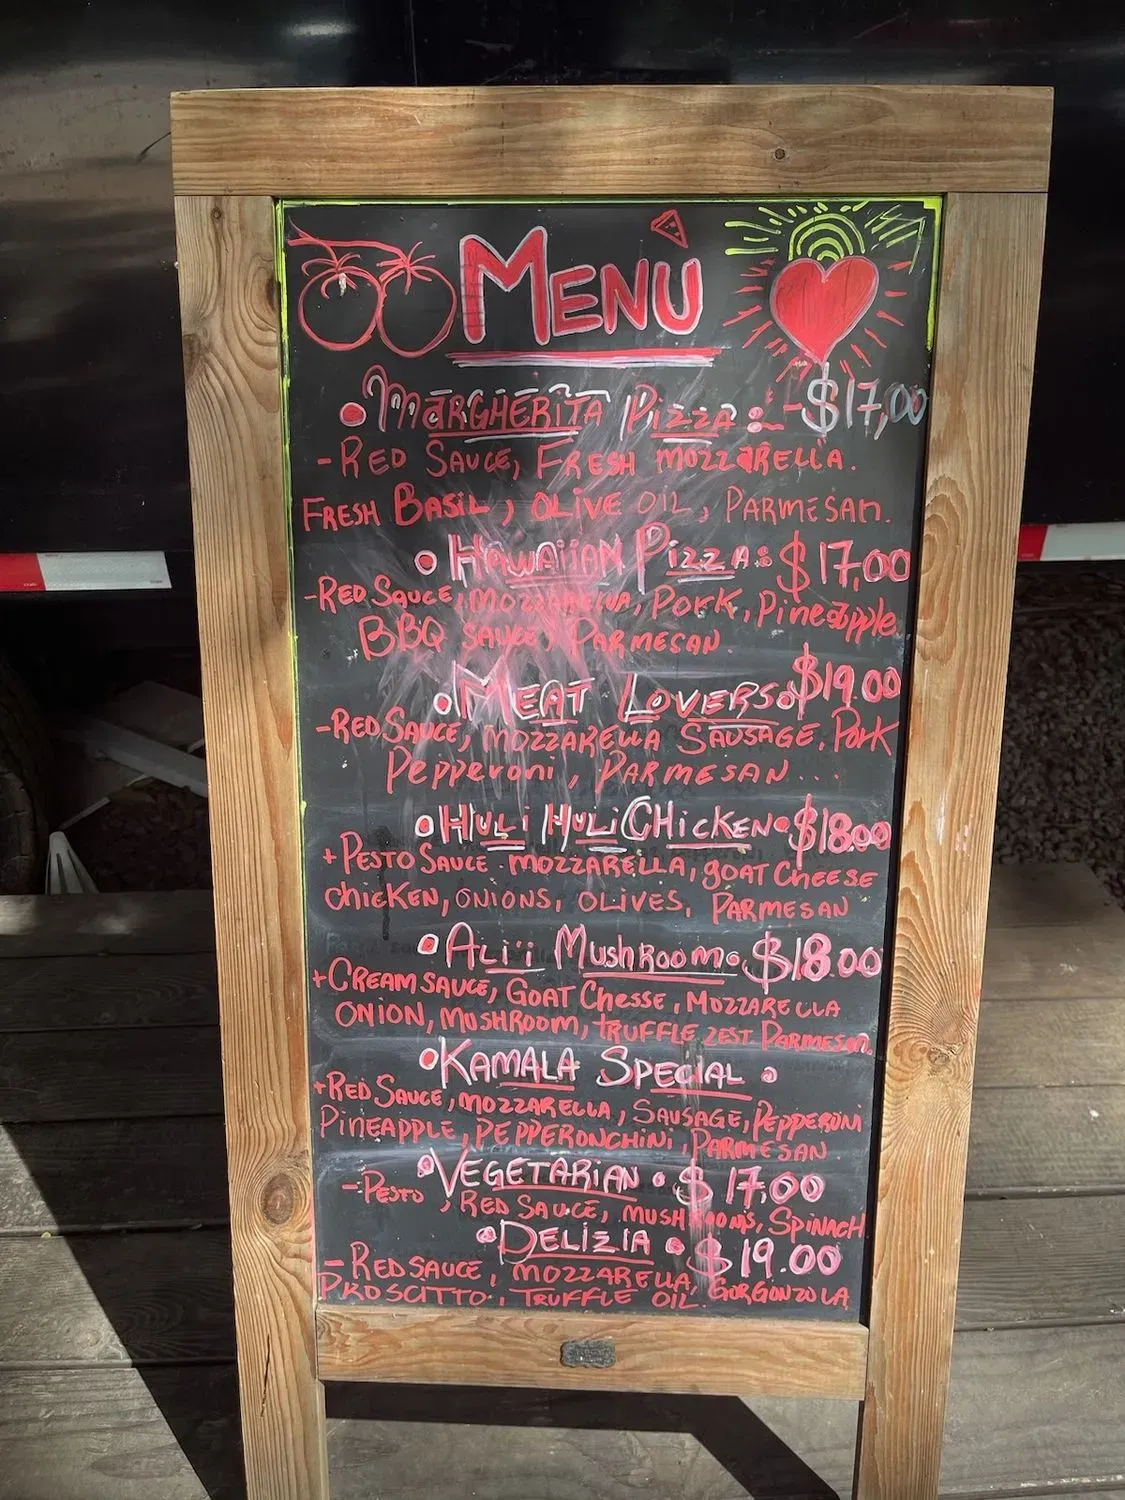 MENU
• MARGHERITA PIZZA: -$17,00
- RED SAUCE, FRESH MOZZARELLA.
FRESH BASIL, OLIVE OIL, PARMESAN.
• HAWAIIAN PIZZA: $17,00
- RED SAUCE, MOZZARELLA, PORK, Pineapple
BBQ SAUCE, PARMESAN.
• MEAT LOVERS • $19.00
- RED SAUCE, MOZZARELLA SAUSAGE, PORK
Pepperoni, PARMESAN ...
• HULI HULI CHICKEN • $18.00
+ PESTO SAUCE. MOZZARELLA, GOAT CHEESE
CHICKEN, ONIONS, OLIVES, PARMESAN
• ALI'I MUSHROOM • $18.00
+ CREAM SAUCE, GOAT CHESSE, MOZZARELLA
ONION, MUSHROOM, TRUFFLE ZEST PARMESAN.
• KAMALA SPECIAL •
+ RED SAUCE, MOZZARELLA, SAUSAGE, PEPPERONI
PINEAPPLE, PEPPERONCHINI, PARMESAN
• VEGETARIAN • $17,00
- PESTO, RED SAUCE, MUSHROOMS, SPINACH
• DELIZIA • $19.00
- RED SAUCE, MOZZARELLA, GORGONZOLA,
PROSCITTO, TRUFFLE OIL.